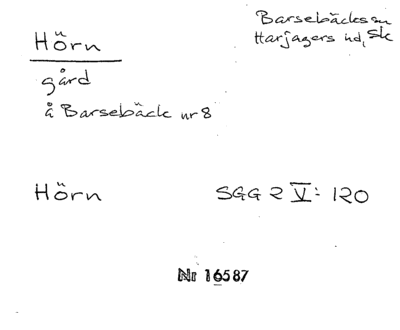 Hörn
Barsebäcks sn
Harjagers hd, Sk
gård
å Barsebäck nr 8
Hörn
SGG 2 V: 120
Nr 16587